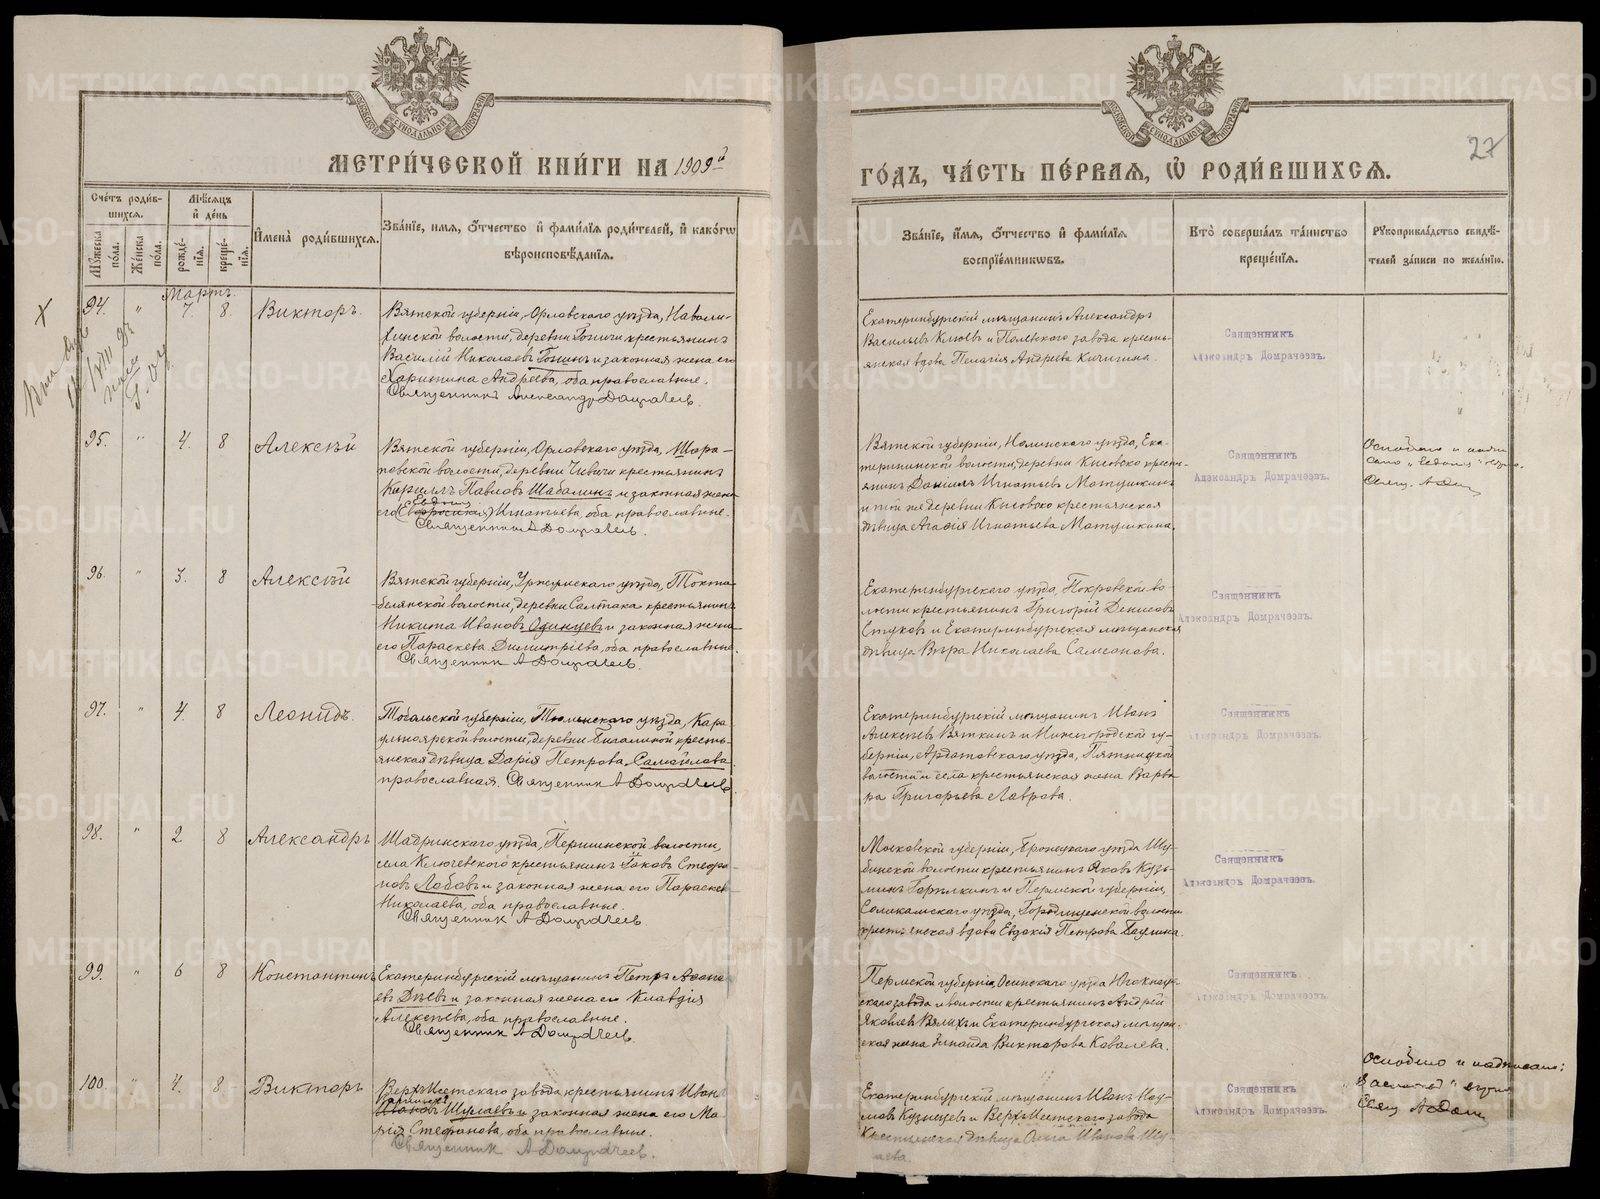 МЕТРИ́ЧЕСКОЙ КНИ́ГИ НА 1909й
ГО́ДЪ, ЧА́СТЬ ПЕ́РВАѦ, Ѽ РОДИ́ВШИХСѦ.
27
Сче́тъ роди́в-
шихсѧ.
Мѣ́сѧцъ
й де́нь
Мꙋ́жеска
по́ла.
Же́нска
по́ла.
рожде́-
нїѧ.
креще́-
нїѧ.
И҆мена̀ роди́вшихсѧ.
Зва́нїе, и҆мѧ, ѻ҆́тчество и҆ фами́лїѧ роди́телей, и҆ како́гѡ
вѣроисповѣ́данїѧ.
Зва́нїе, и҆́мѧ, ѻ҆́тчество и҆ фами́лїѧ
воспрїе́мникѡвъ.
Кто̀ соверша́лъ та́инство
креще́нїѧ.
Рꙋкоприкла́дство свидѣ́-
телей за́писи по жела́нїю.
Мартъ.
94. " 7. 8. Викторъ.
Вятской губерніи, Орловскаго уѣзда, Навали-
хинской волости, деревни крестьянинъ
Василій Николаевъ Гонинъ и законная жена его
Харитина Андреева, оба православные.
Священникъ Александр Домрачеевъ.
Екатеринбургскій мѣщанинъ Александръ
Васильевъ Клюевъ и Полевского завода кресть-
янская вдова Пелагія Андреева Кичигина.
Священникъ
Александръ Домрачеевъ.
95. " 4. 8 Алексѣй
Вятской губерніи, Орловскаго уѣзда, Шара-
повской волости, деревни крестьянинъ
Кириллъ Павловъ Шабалинъ и законная жена
его Игнатьева, оба православные.
Священникъ А Домрачеевъ.
Вятской губерніи, Нолинскаго уѣзда, Ека-
терининской волости, деревни крестья-
янинъ Даніилъ Игнатьевъ Матушкинъ
и той же деревни крестьянская
дѣвица Агафія Игнатьева Матушкина.
Священникъ
Александръ Домрачеевъ.
Свящ. А Дом
96. " 3. 8 Алексѣй
Вятской губерніи, Уржумскаго уѣзда, Токта-
белякской волости, деревни Салтака крестьянинъ
Никита Ивановъ Одинцевъ и законная жена
его Параскева Димитріева, оба православные.
Священникъ А Домрачеевъ.
Екатеринбургскаго уѣзда, Покровской во-
лости крестьянинъ Григорій Денисовъ
Стуковъ и Екатеринбургская мѣщанская
дѣвица Вѣра Николаева Самсонова.
Священникъ
Александръ Домрачеевъ.
97. " 4. 8 Леонидъ.
Тобольской губерніи, Тюменскаго уѣзда, Кара-
ульноярской волости, деревни Бигалиной кресть-
янская дѣвица Дарія Петрова Самойлова
православная. Священникъ А Домрачеевъ
Екатеринбургскій мѣщанинъ Иванъ
Алексѣевъ Вяткинъ и Нижегородской гу-
берніи, Ардатовскаго уѣзда, Пятницкой
волости и села крестьянская жена Варва-
ра Григорьева Лаврова.
Священникъ
Александръ Домрачеевъ.
98. " 2 8 Александръ
Шадринскаго уѣзда, Першинской волости,
села Ключевского крестьянинъ Іаковъ Стефа-
новъ Лобовъ и законная жена его Параскева
Николаева, оба православные.
Священникъ А Домрачеевъ.
Московской губерніи, Бронецкаго уѣзда Шу-
бинской волости крестьянинъ Яковъ Кузь-
минъ Горилкинъ и Пермской губерніи,
Соликамскаго уѣзда, Городищенской волости
крестьянская вдова Евдокія Петрова Паулина.
Священникъ
Александръ Домрачеевъ.
99. " 6 8 Константинъ
Екатеринбургскій мѣщанинъ Петръ
Дѣевъ и законная жена его Клавдія
Алексѣева, оба православные.
Священникъ А Домрачеевъ.
Пермской губерніи, Осинскаго уѣзда
скаго завода и волости крестьянинъ Андрей
Яковлевъ Вялыхъ и Екатеринбургская мѣщан-
ская жена Зинаида Викторова Ковалева.
Священникъ
Александръ Домрачеевъ.
100. " 4. 8. Викторъ
Верхъ-Исетскаго завода крестьянинъ Иванъ
Шулаевъ и законная жена его Ма-
рія Стефанова, оба православные.
Священникъ А Домрачеевъ.
Екатеринбургскій мѣщанинъ Иванъ Нау-
мовъ Кузнецовъ и Верхъ-Исетскаго завода
крестьянская дѣвица Анна Иванова Шу-
лаева.
Священникъ
Александръ Домрачеевъ.
Свящ. А Дом
METRIKI.GASO-URAL.RU